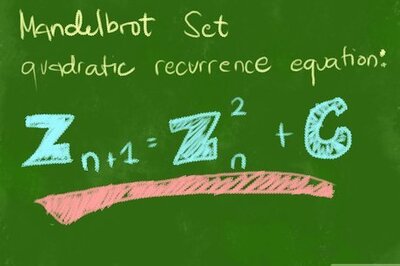 Mandelbrot Set
quadratic recurrence equation:
Zₙ₊₁ = Zₙ² + C